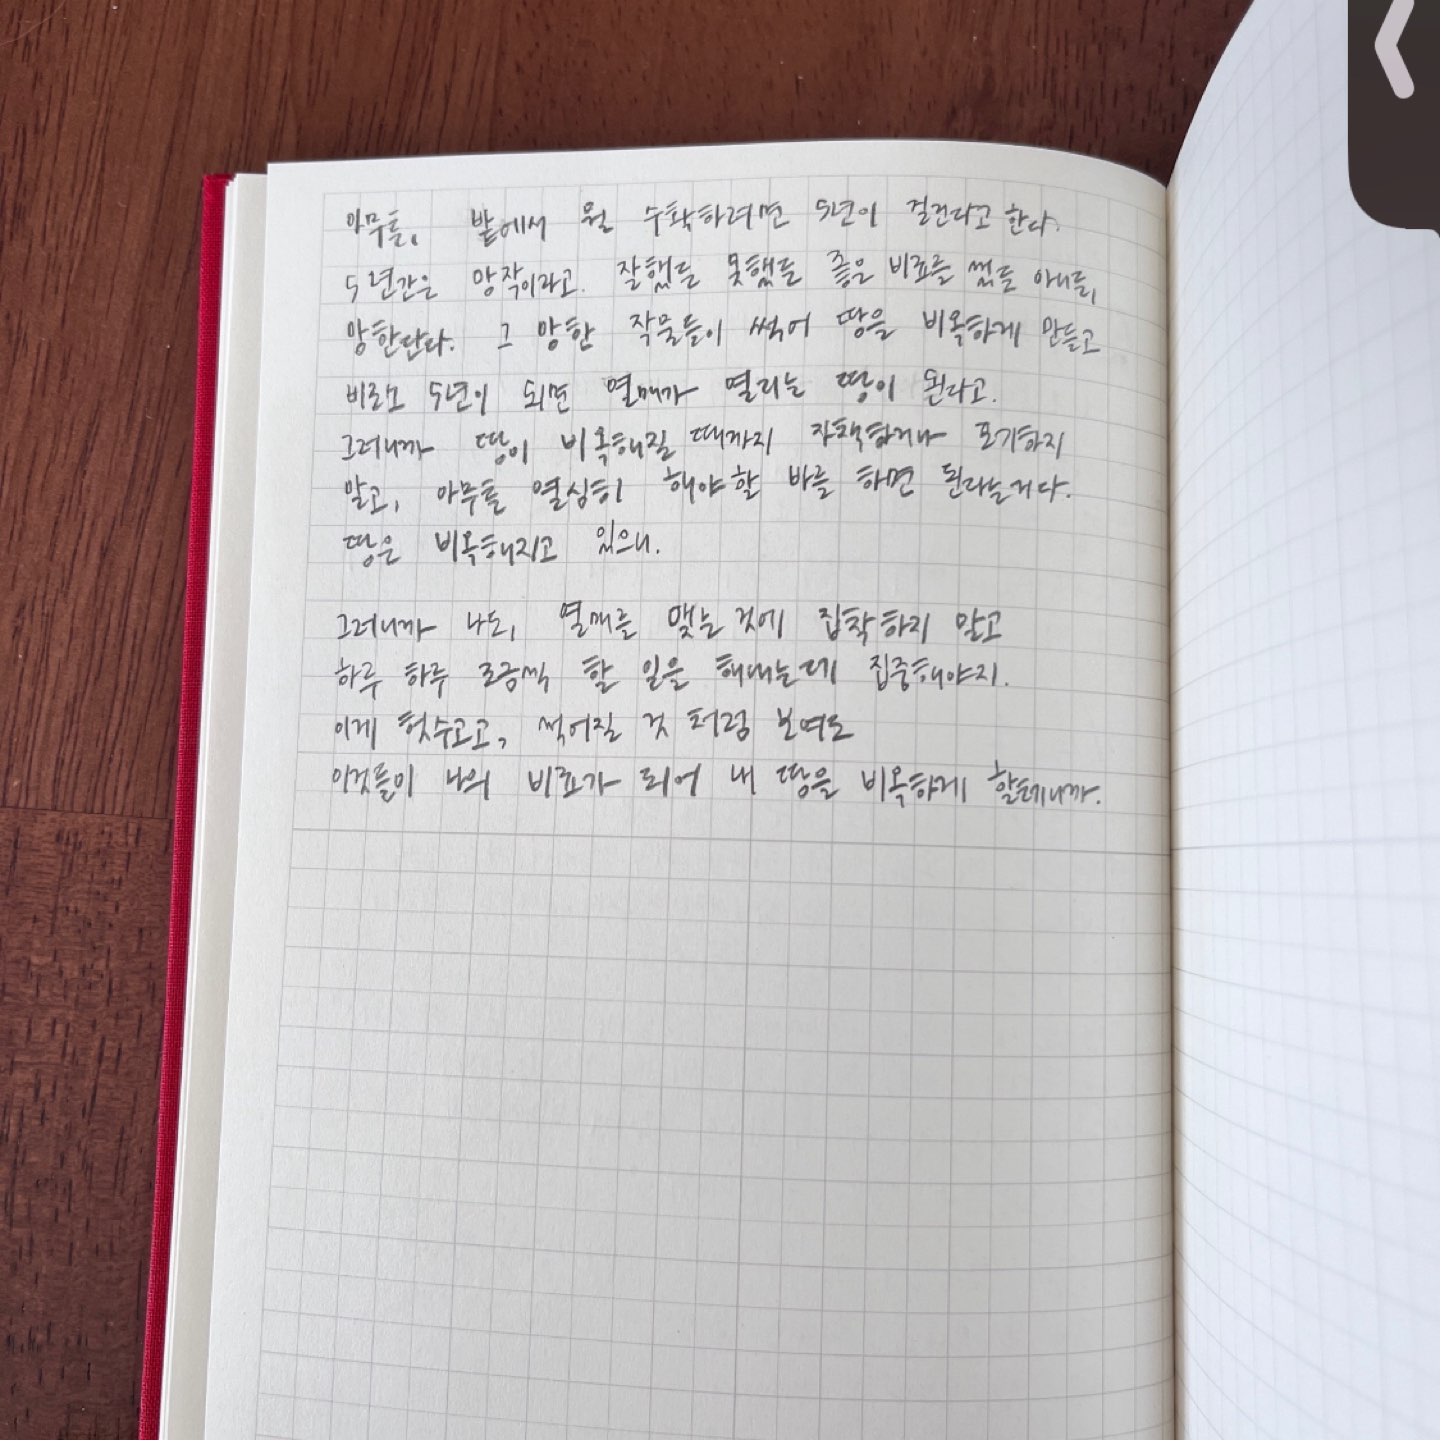 아무튼, 밭에서 뭘 수확하려면 5년이 걸린다고 한다.
5년간은 망작이라고. 잘했든 못했든 좋은 비료를 썼든 아니든,
망한단다. 그 망한 작물들이 썩어 땅을 비옥하게 만들고
비로소 5년이 되면 열매가 열리는 땅이 된다고.
그러니까 땅이 비옥해질 때까지 자책하거나 포기하지
말고, 아무튼 열심히 해야할 바를 하면 된다는거다.
땅은 비옥해지고 있으니.
그러니까 나도, 열매를 맺는 것에 집착하지 말고
하루 하루 조금씩 할 일을 해내는데 집중해야지.
이게 헛수고고, 썩어질 것 처럼 보여도
이것들이 나의 비료가 되어 내 땅을 비옥하게 할테니까.